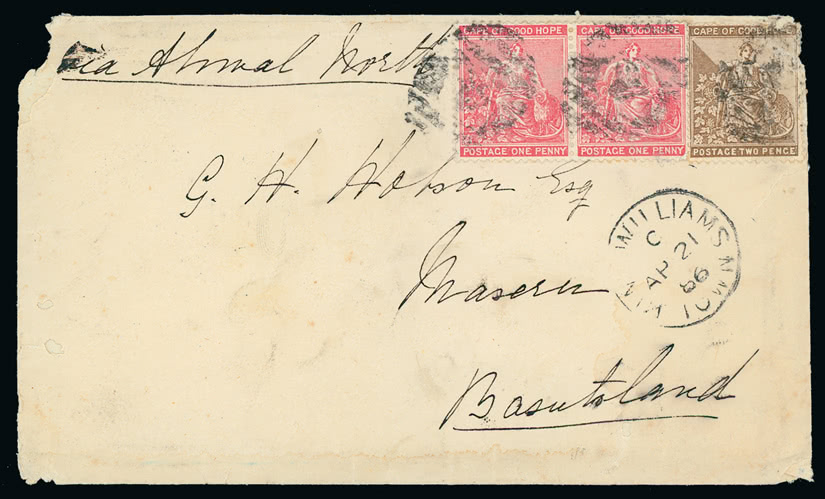 via Aliwal North
CAPE OF GOOD HOPE
POSTAGE ONE PENNY
CAPE OF GOOD HOPE
POSTAGE ONE PENNY
CAPE OF GOOD HOPE
POSTAGE TWO PENCE
G. H. Hobson Esq
Maseru
Basutoland
WILLIAMS
C
AP 21
86